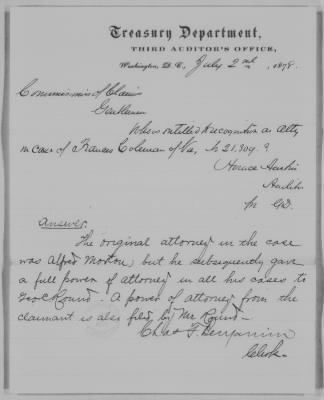 Treasury Department,
THIRD AUDITOR'S OFFICE,
Washington, D. C., July 2nd, 1878.
Commissioners of Claims
Gentlemen
Who is entitled to recognition as Atty
in case of Frances Coleman of Va, No 21.309?
Horace Austin
Auditor
Answer.
The original attorney in the case
was Alfred Morton, but he subsequently gave
a full power of attorney in all his cases to
Geo C Round. A power of attorney from the
claimant is also filed by Mr Round—
Chas F. Benjamin
Clerk.